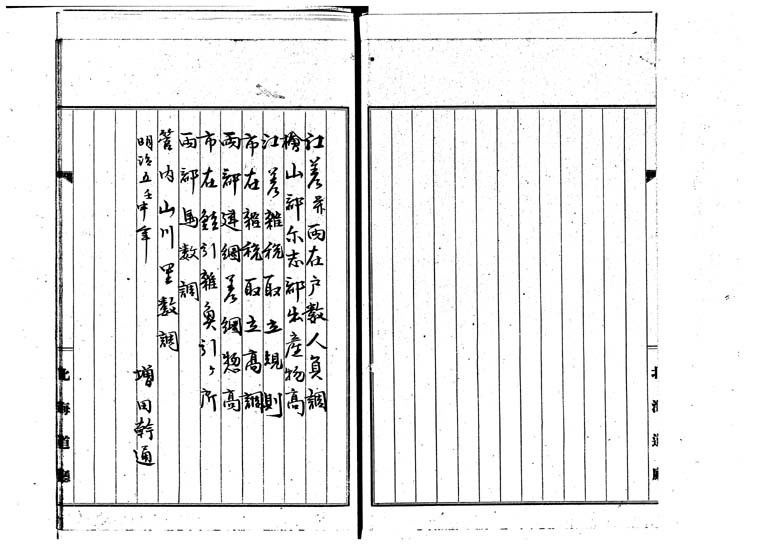 江差并両在戸数人員調
檜山郡尓志郡出産物高
江差雑税取立規則
市在雑税取立高調
両郡建網差網惣高
市在鯡引雑魚引ヶ所
両郡馬数調
管内山川里数調
明治五壬申年
増田幹通
北海道廳
北海道廳